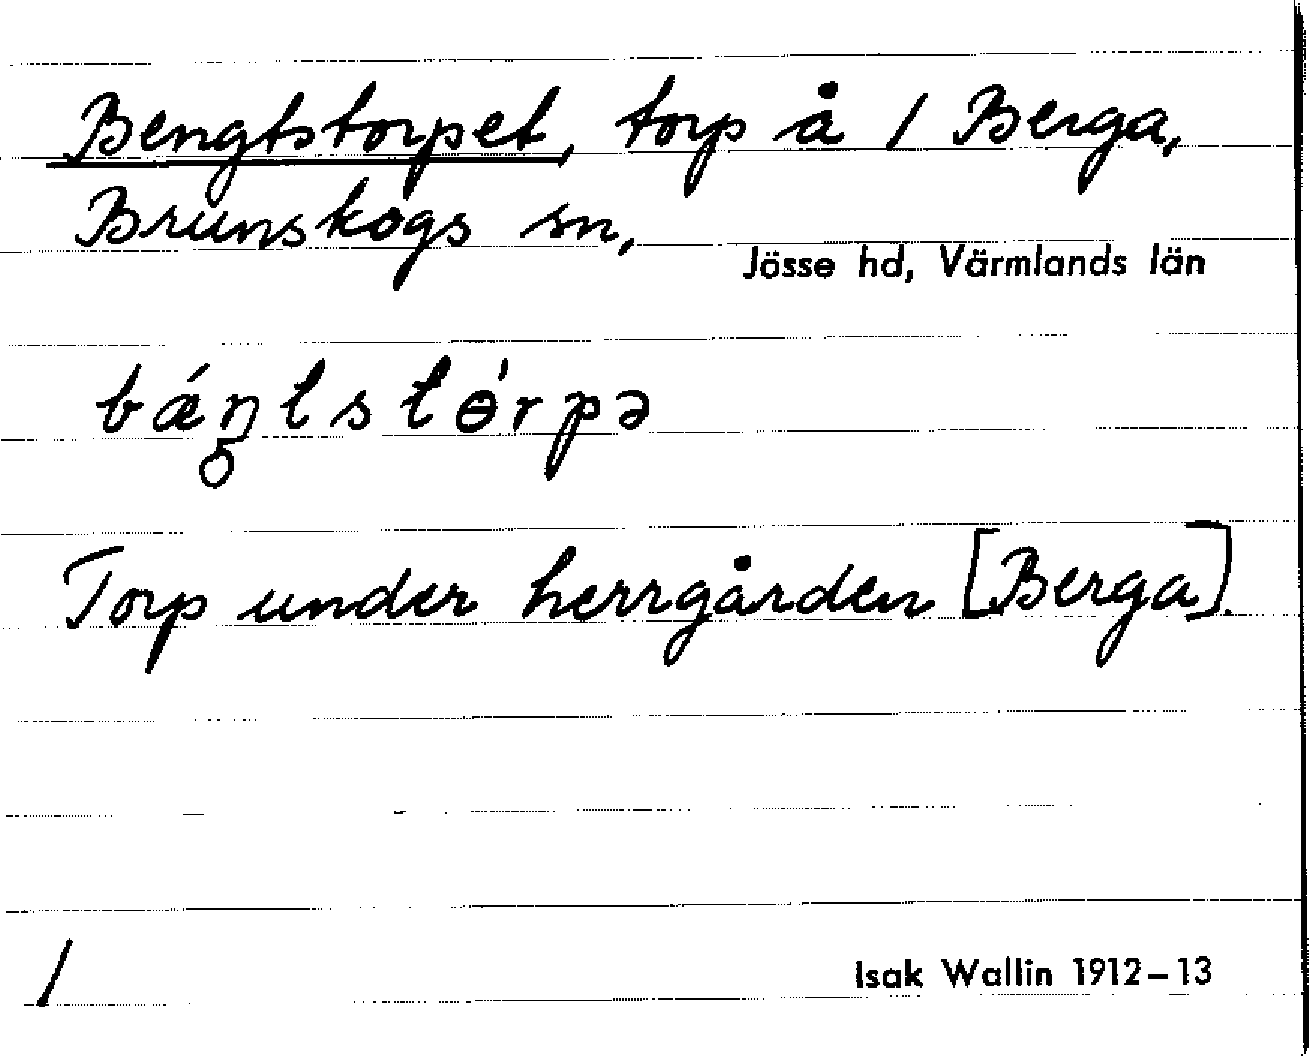 Bengtstorpet, torp å / Berga,
Brunskogs sn,
Jösse hd, Värmlands län
bǽŋ̥tstɵ́rpə
Torp under herrgården [Berga].
/
Isak Wallin 1912–13